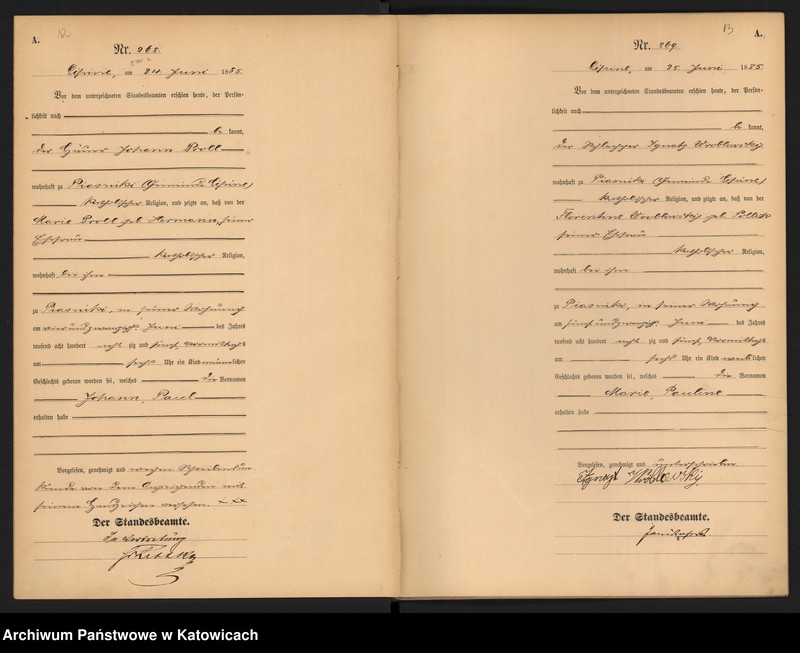 A.
Nr. 268.
am 24 Juni 1885.
Vor dem unterzeichneten Standesbeamten erschien heute, der Persön-
lichkeit nach
be kannt,
der Häuer Johann Proll
wohnhaft zu Piasniki (Gemeinde Lipine)
katholischer Religion, und zeigte an, daß von der
Marie Proll geb Hermann, seiner
Ehefrau
katholischer Religion,
wohnhaft bei ihm
zu Piasniki, in seiner Wohnung
am vier und zwanzigsten Juni des Jahres
tausend acht hundert acht zig und fünf, Vormittags
um sechs Uhr ein Kind männlichen
Geschlechts geboren worden sei, welches die Vornamen
Johann, Paul
erhalten habe
Vorgelesen, genehmigt und wegen Schreibenun-
kunde von dem Anzeigenden mit
seinem Handzeichen versehen. XXX
Der Standesbeamte.
In Vertretung
B
A.
Nr. 269.
Lipine, am 25 Juni 1885.
Vor dem unterzeichneten Standesbeamten erschien heute, der Persön-
lichkeit nach
be kannt,
der Schlepper Ignatz Wroblewsky
wohnhaft zu Piasniki (Gemeinde Lipine)
katholischer Religion, und zeigte an, daß von der
Florentine Wroblewsky geb
seiner Ehefrau
katholischer Religion,
wohnhaft bei ihm
zu Piasniki, in seiner Wohnung
am fünf und zwanzigsten Juni des Jahres
tausend acht hundert acht zig und fünf, Vormittags
um sechs Uhr ein Kind weiblichen
Geschlechts geboren worden sei, welches die Vornamen
Marie, Pauline
erhalten habe
Vorgelesen, genehmigt und unterschrieben
Der Standesbeamte.
Archiwum Państwowe w Katowicach